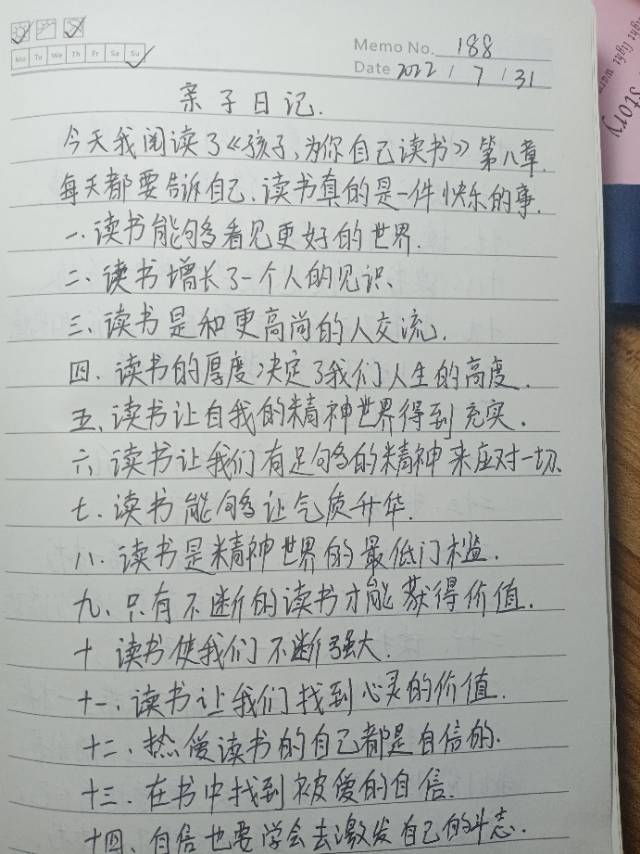 Mo Tu We Th Fr Sa Su
Memo No. 188
Date 2022 / 7 / 31
亲子日记.
今天我阅读了《孩子,为你自己读书》第八章.
每天都要告诉自己、读书真的是一件快乐的事.
一.读书能够看见更好的世界.
二、读书增长了一个人的见识、
三、读书是和更高尚的人交流.
四.读书的厚度决定了我们人生的高度.
五、读书让自我的精神世界得到充实.
六.读书让我们有足够的精神来应对一切、
七.读书能够让气质升华.
八.读书是精神世界的最低门槛.
九.只有不断的读书才能获得价值.
十 读书使我们不断强大.
十一.读书让我们找到心灵的价值.
十二、热爱读书的自己都是自信的.
十三.在书中找到被爱的自信.
十四.自信也要学会去激发自己的斗志.
story